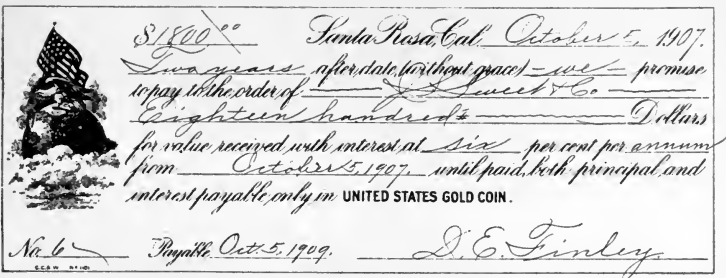 $1800.00 Santa Rosa, Cal. October 5, 1907.
Two years after date (without grace) - we - promise
to pay to the order of J. S. Sweet & Co.
Eighteen hundred Dollars
for value received, with interest at six per cent per annum
from October 5, 1907. until paid, both principal and
interest payable only in UNITED STATES GOLD COIN.
No. 6 Payable Oct. 5. 1909. D. E. Finley